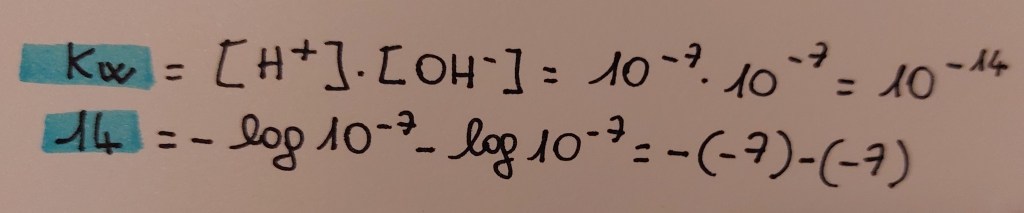 Kw = [H⁺]·[OH⁻] = 10⁻⁷·10⁻⁷ = 10⁻¹⁴
14 = - log 10⁻⁷ - log 10⁻⁷ = -(-7)-(-7)